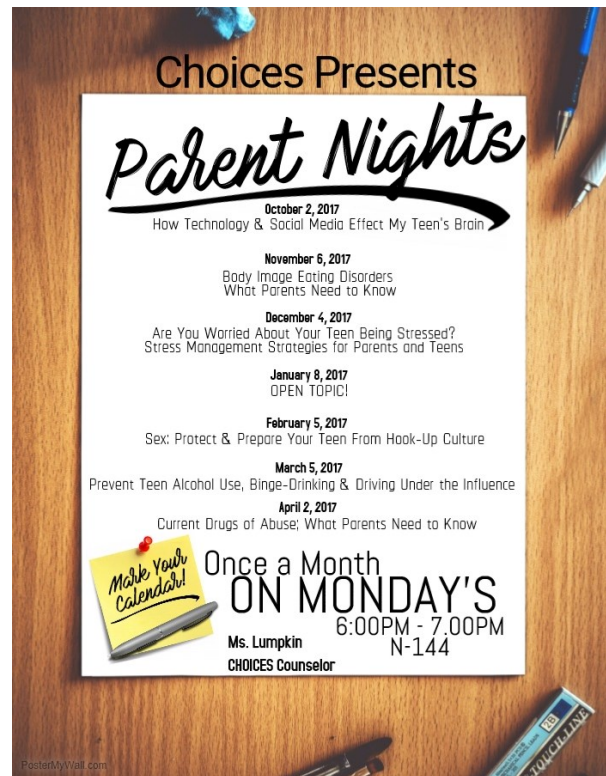 Choices Presents
Parent Nights
October 2, 2017
How Technology & Social Media Effect My Teen's Brain
November 6, 2017
Body Image Eating Disorders
What Parents Need to Know
December 4, 2017
Are You Worried About Your Teen Being Stressed?
Stress Management Strategies for Parents and Teens
January 8, 2017
OPEN TOPIC!
February 5, 2017
Sex: Protect & Prepare Your Teen From Hook-Up Culture
March 5, 2017
Prevent Teen Alcohol Use, Binge-Drinking & Driving Under the Influence
April 2, 2017
Current Drugs of Abuse; What Parents Need to Know
Mark Your
Calendar!
Once a Month
ON MONDAY'S
6:00PM - 7.00PM
N-144
Ms. Lumpkin
CHOICES Counselor
2B
TOUCH-LINE
PosterMyWall.com